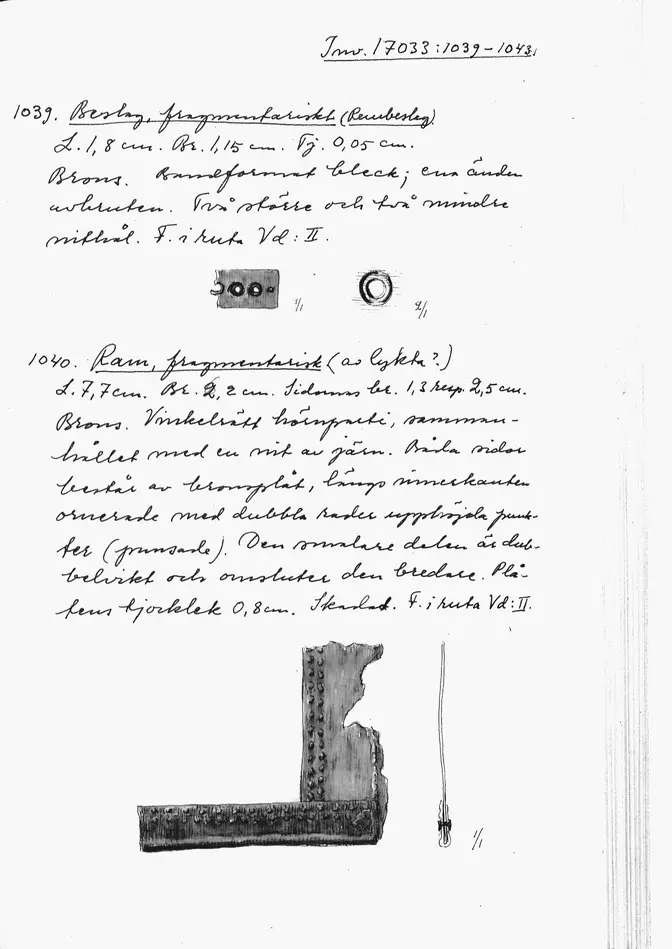 Inv. 17033:1039-1043
1039. Beslag, fragmentariskt (Rembeslag)
L. 1,8 cm. Br. 1,15 cm. Tj. 0,05 cm.
Brons. Bandformat bleck; ena änden
avbruten. Två större och två mindre
nithål. F. i ruta Vd: II.
1/1 2/1
1040. Ram, fragmentarisk (av lykta?.)
L. 7,7 cm. Br. 2,2 cm. Sidornas br. 1,3 resp. 2,5 cm.
Brons. Vinkelrätt hörnparti, samman-
hållet med en nit av järn. Båda sidor
består av bronsplåt, längs innerkanten
ornerade med dubbla rader upphöjda punk-
ter (punsade). Den smalare delen är dub-
belvikt och omsluter den bredare. Plå-
tens tjocklek 0,8 cm. Skadad. F. i ruta Vd: II.
1/1